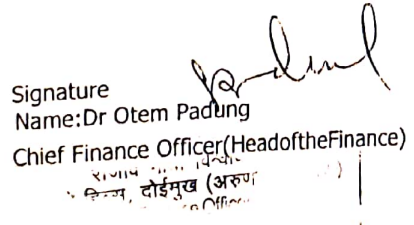 Signature
Name:Dr Otem Padung
Chief Finance Officer(HeadoftheFinance)
दोईमुख (अरुण